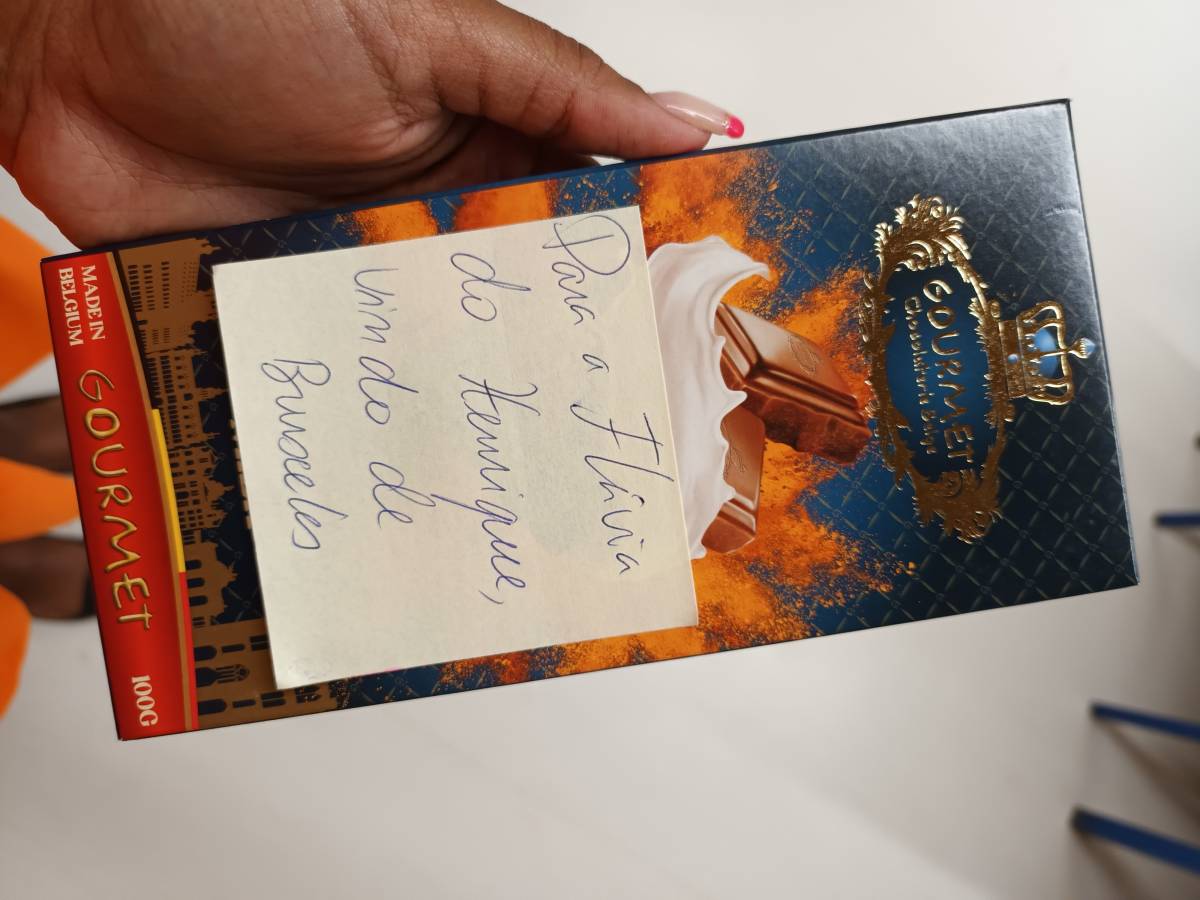 GOURMET
Chocolaterie Belge
Para a Flívia
do Henrique,
vindo de
Bruxelles
MADE IN
BELGIUM
GOURMET
100G